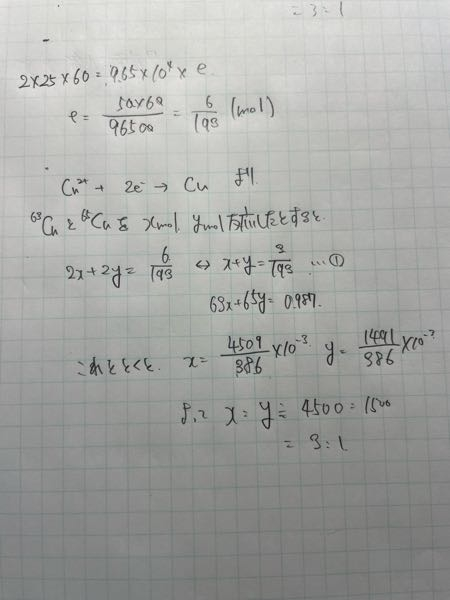 = 3 : 1
2×25×60 = 9.65×10⁴ × e
e = 50×60/96500 = 6/193 (mol)
Cu²⁺ + 2e⁻ → Cu より
⁶³Cu と ⁶⁵Cu を x mol, y mol 析出したとすると
2x+2y = 6/193 ⇔ x+y = 3/193 … ①
63x+65y = 0.987.
これをとくと x = 4509/386 ×10⁻³ y = 1491/386 ×10⁻³
よって x : y ≒ 4500 : 1500
= 3 : 1